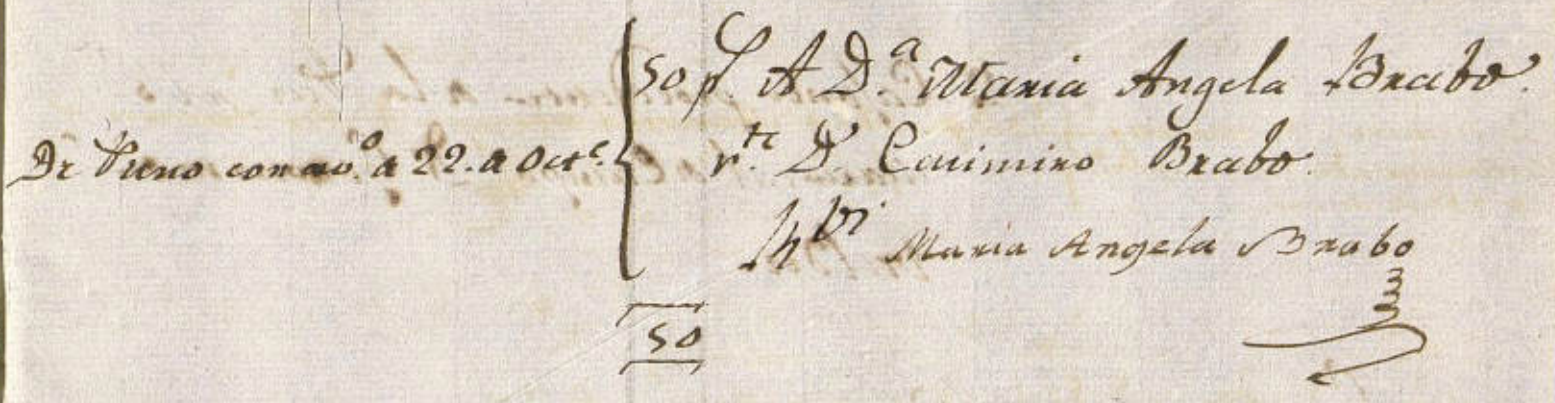 De Puno con av.º a 22. a Oct.e
50 p.s A D.ª Maria Angela Brabo.
r.te D. Casimiro Brabo.
Rbi Maria Angela Brabo
50